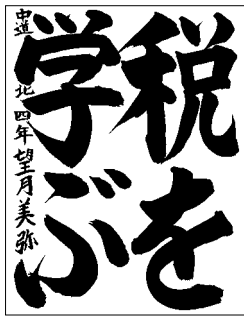 税を
学ぶ
中道北四年望月美弥